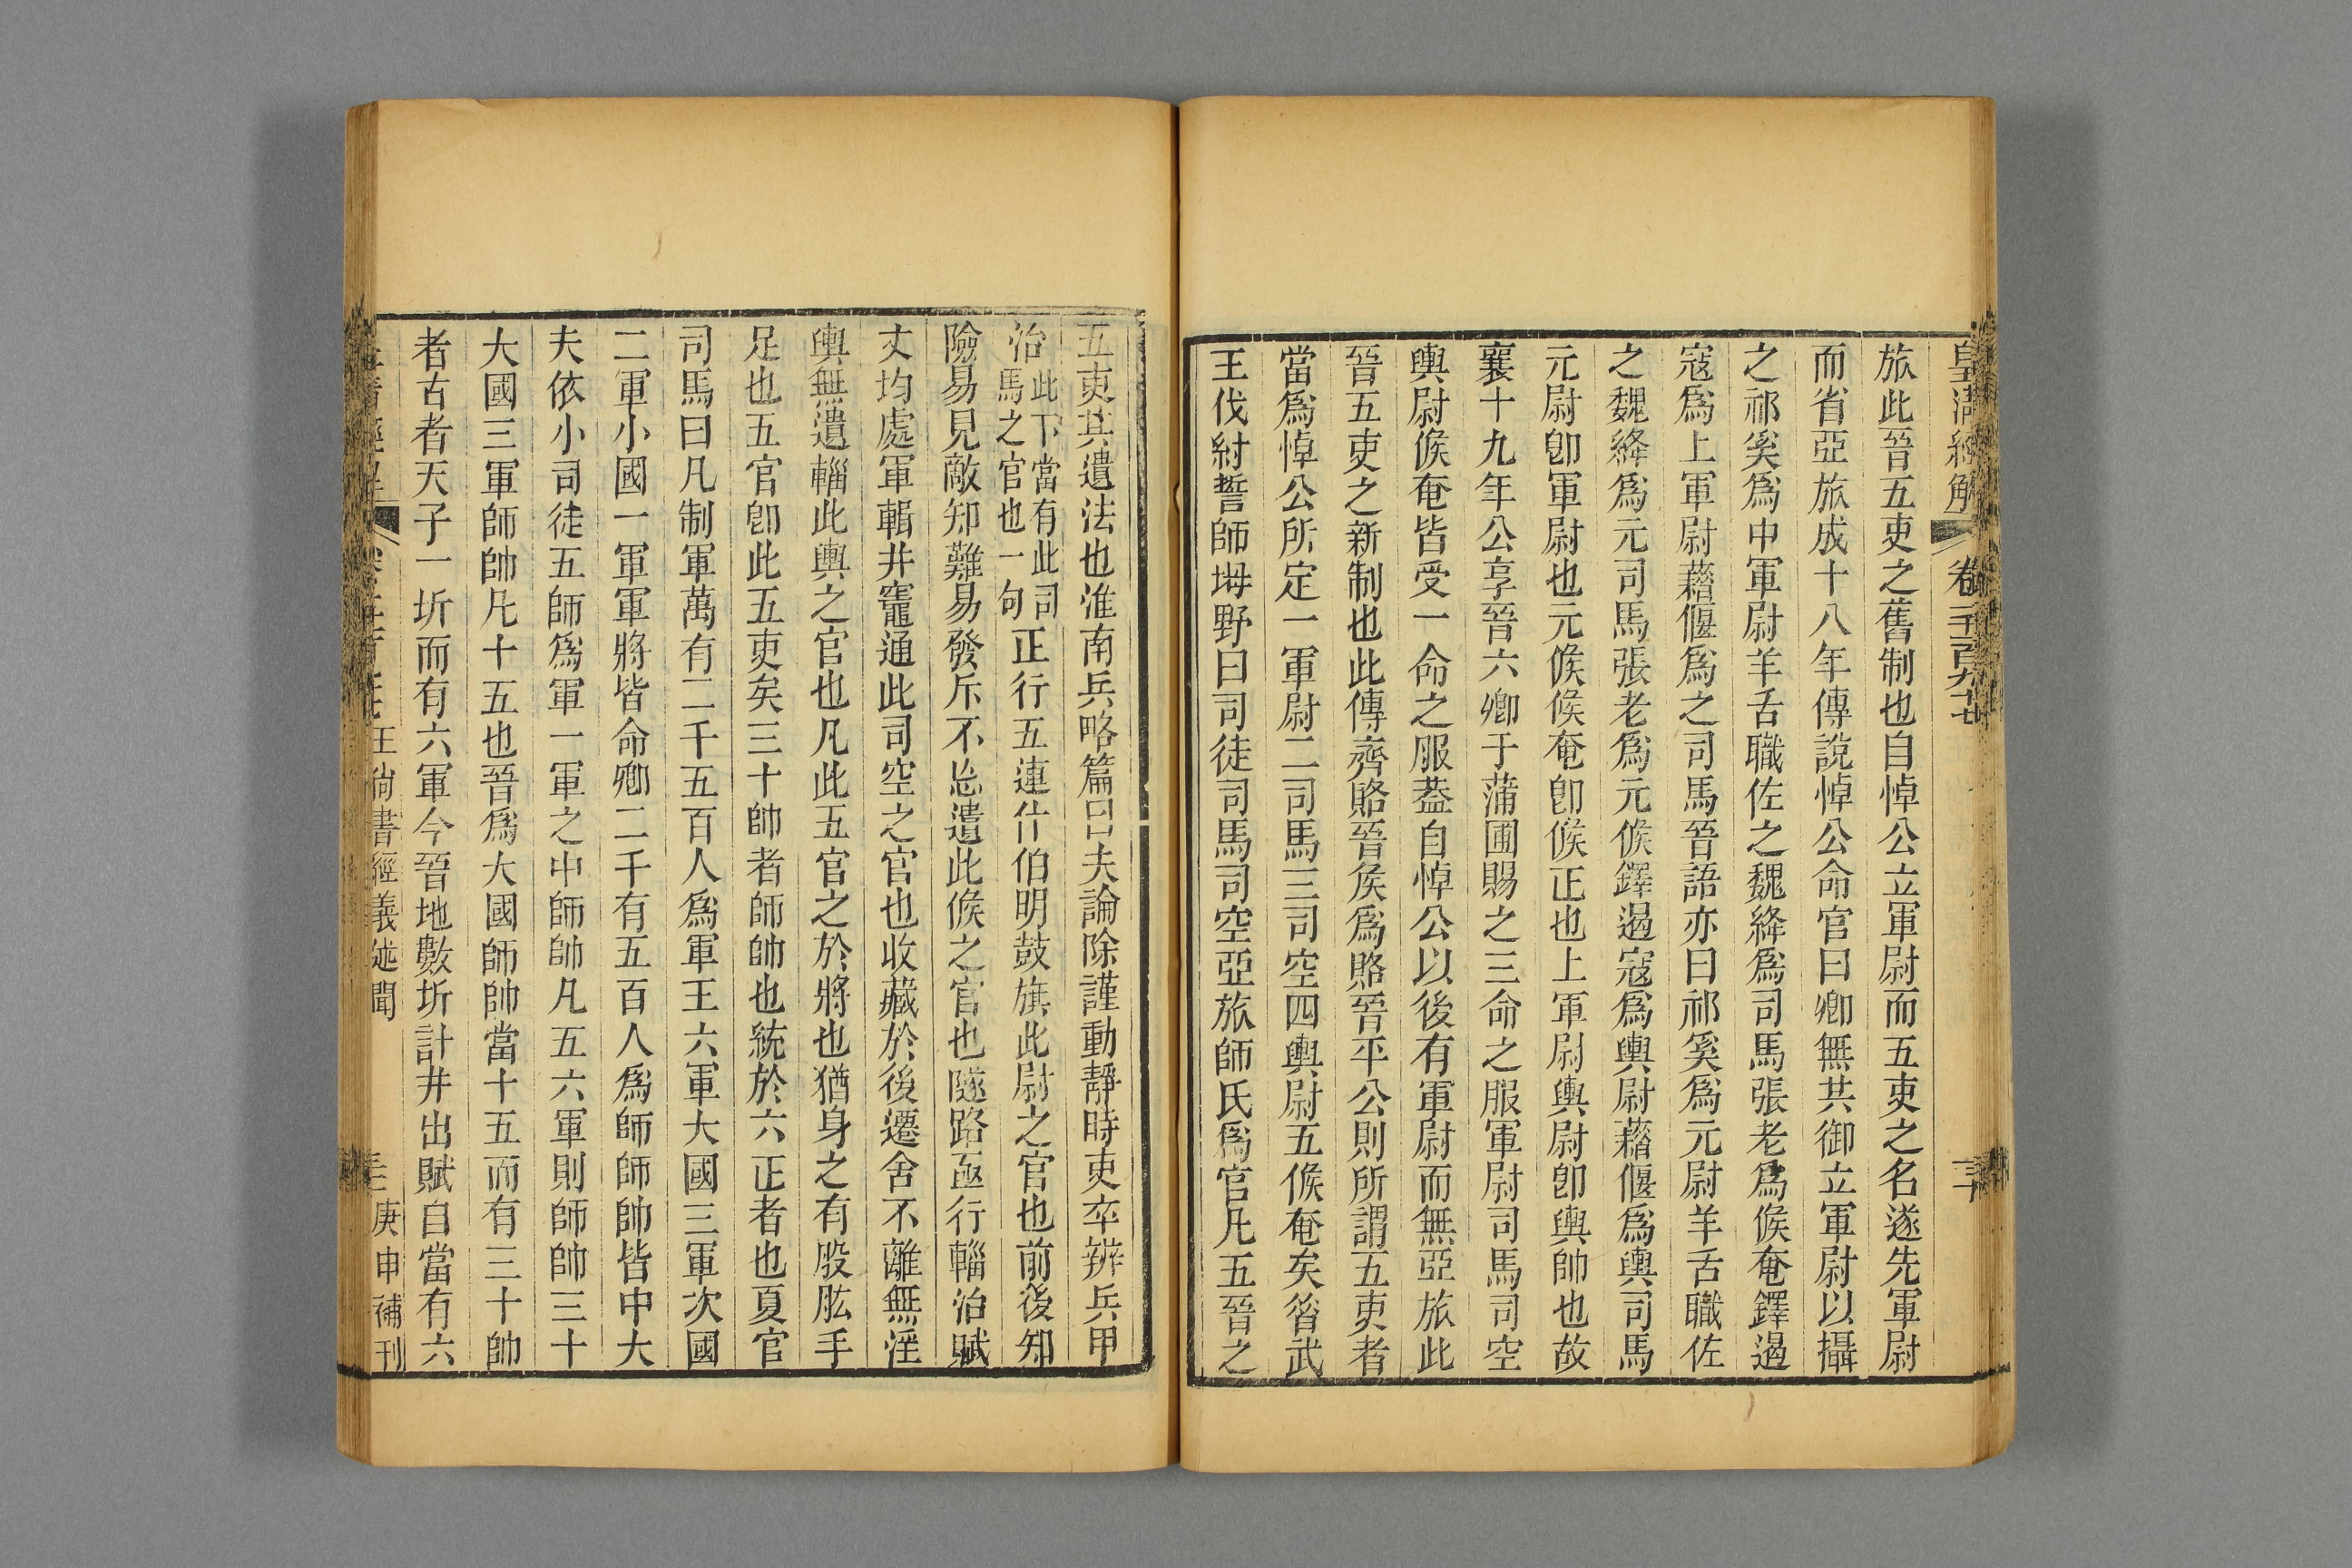 皇清經解 卷一千一百九十七 三十
旅此晉五吏之舊制也自悼公立軍尉而五吏之名遂先軍尉
而省亞旅成十八年傳說悼公命官曰卿無共御立軍尉以攝
之祁奚爲中軍尉羊舌職佐之魏絳爲司馬張老爲候奄鐸遏
寇爲上軍尉藉偃爲之司馬晉語亦曰祁奚爲元尉羊舌職佐
之魏絳爲元司馬張老爲元候鐸遏寇爲輿尉藉偃爲輿司馬
元尉卽軍尉也元候候奄卽候正也上軍尉輿尉卽輿帥也故
襄十九年公享晉六卿于蒲圃賜之三命之服軍尉司馬司空
輿尉候奄皆受一命之服蓋自悼公以後有軍尉而無亞旅此
晉五吏之新制也此傳齊賂晉侯爲賂晉平公則所謂五吏者
當爲悼公所定一軍尉二司馬三司空四輿尉五候奄矣昝武
王伐紂誓師坶野曰司徒司馬司空亞旅師氏爲官凡五晉之
五吏其遺法也淮南兵略篇曰夫論除謹動靜時吏卒辨兵甲
治此下當有此司馬之官也一句正行五連什伯明鼓旗此尉之官也前後知
險易見敵知難易發斥不忘遺此候之官也隧路亟行輜治賦
丈均處軍輯井竈通此司空之官也收藏於後遷舍不離無淫
輿無遺輜此輿之官也凡此五官之於將也猶身之有股肱手
足也五官卽此五吏矣三十帥者師帥也統於六正者也夏官
司馬曰凡制軍萬有二千五百人爲軍王六軍大國三軍次國
二軍小國一軍軍將皆命卿二千有五百人爲師師帥皆中大
夫依小司徒五師爲軍一軍之中師帥凡五六軍則師帥三十
大國三軍師帥凡十五也晉爲大國師帥當十五而有三十帥
者古者天子一圻而有六軍今晉地數圻計井出賦自當有六
王尙書經義述聞 庚申補刊